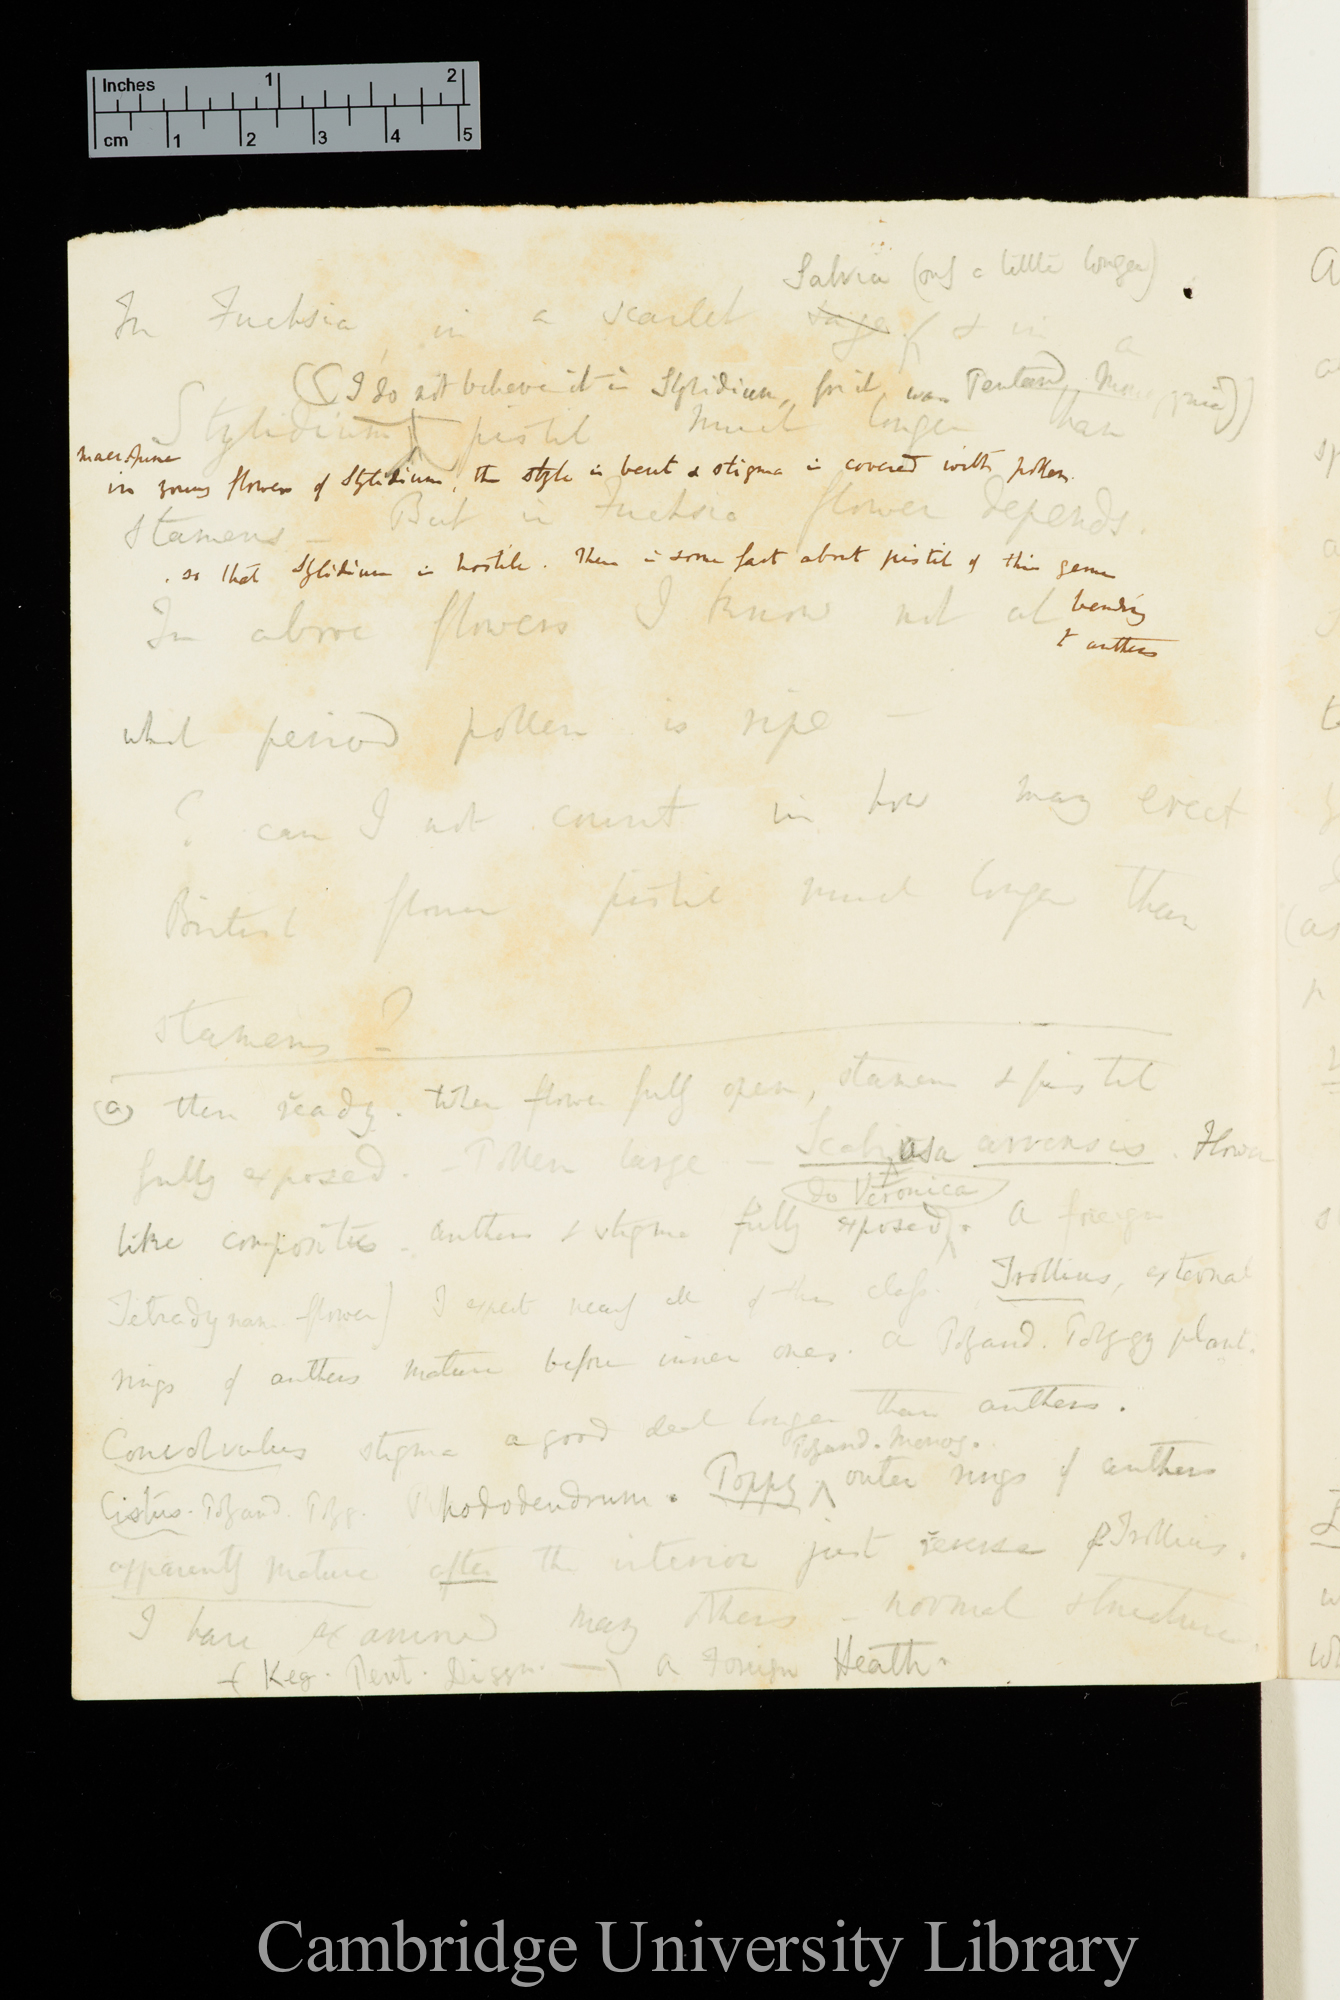 Inches 1 2
cm 1 2 3 4 5
Salvia (only a little longer)
In Fuchsia in a scarlet sage ( & in a
((I do not believe it in Stylidium, for it was Pentand, Monogynia))
Stylidium pistil much longer than
in young flowers of Stylidium, the style is bent & stigma is covered with pollen.
stamens – But in Fuchsia flower depends.
. so that Stylidium is hostile. There is some fact about pistil of this genus
bending
In above flowers I know not at
& anthers
what period pollen is ripe —
? can I not count in how many erect
British flower pistil much longer than
stamens ?
(a) then ready. When flower fully open, stamen & pistil
fully exposed. – Pollen large – Scabiosa arvensis. Flower
do Veronica
like composites – anthers & stigma fully exposed. A foreign
Tetradynam. flower) I expect nearly all of this class. Trollius, external
rings of anthers mature before inner ones. a Polyand. Polygy plant.
Convolvulus stigma a good deal longer than anthers.
Polyand. Monog.
Cistus. Polyand. Rhododendrum. Poppy outer rings of anthers
apparently mature after the interior just reverse of Trollius.
I have examined many others – normal structure.
Pent. Digyn. —) a Foreign Heath.
Cambridge University Library